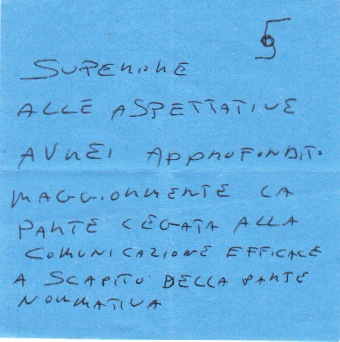 5
SUPERIORE
ALLE ASPETTATIVE
AVREI APPROFONDITO
MAGGIORMENTE LA
PARTE LEGATA ALLA
COMUNICAZIONE EFFICACE
A SCAPITO DELLA PARTE
NORMATIVA